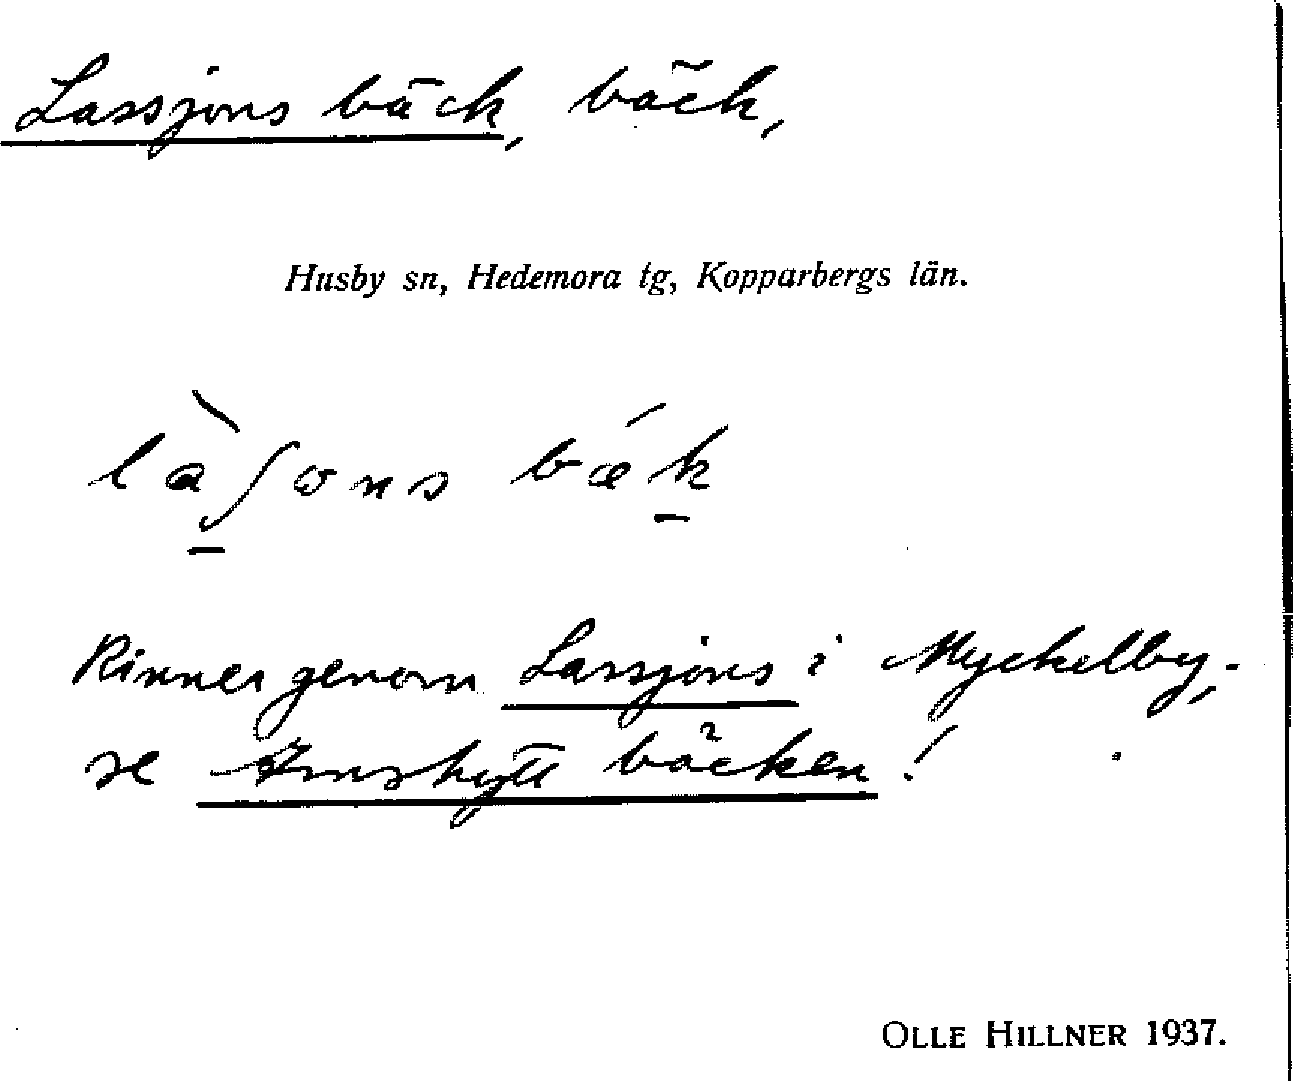 Lassjons bäck, bäck,
Husby sn, Hedemora tg, Kopparbergs län.
làʃons bǽk
Rinner genom Lassjons i Myckelby,
se Imshytt bäcken!
OLLE HILLNER 1937.